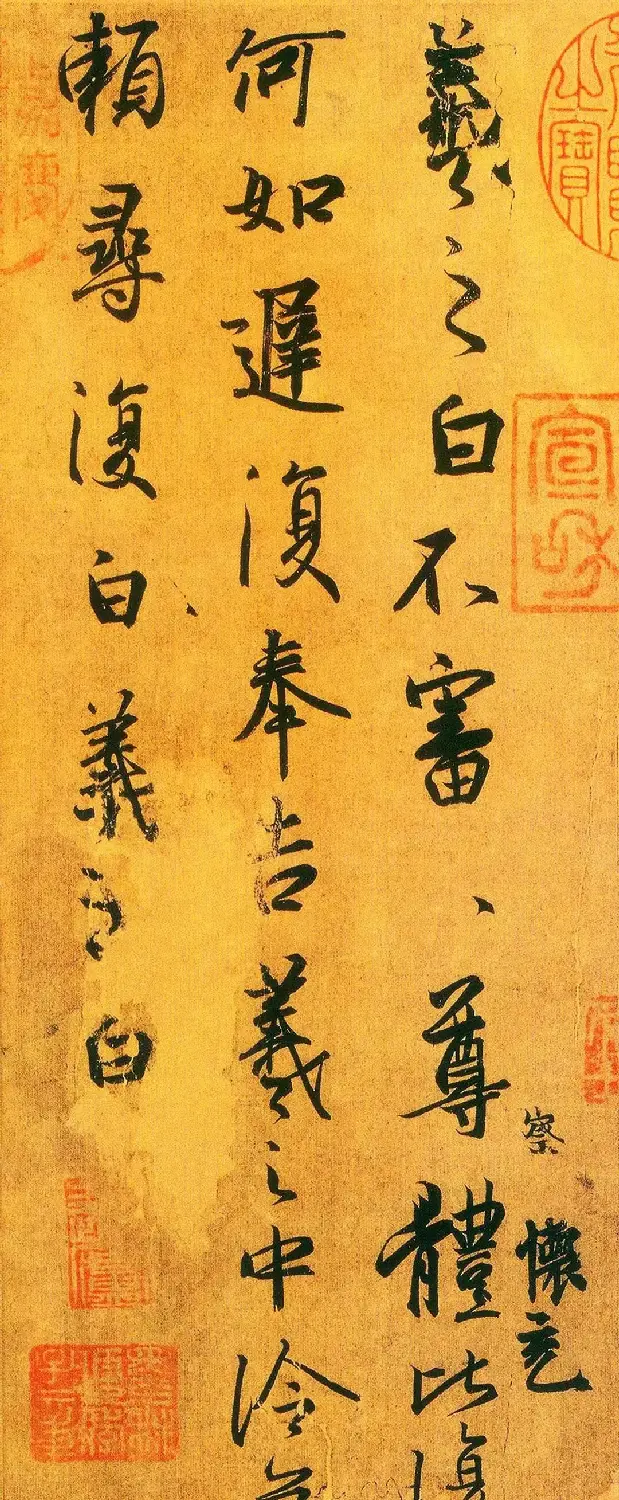 宣和
察
懷充
羲之白不審、尊體比復
何如遲復奉告羲之中冷
賴尋復白羲之白